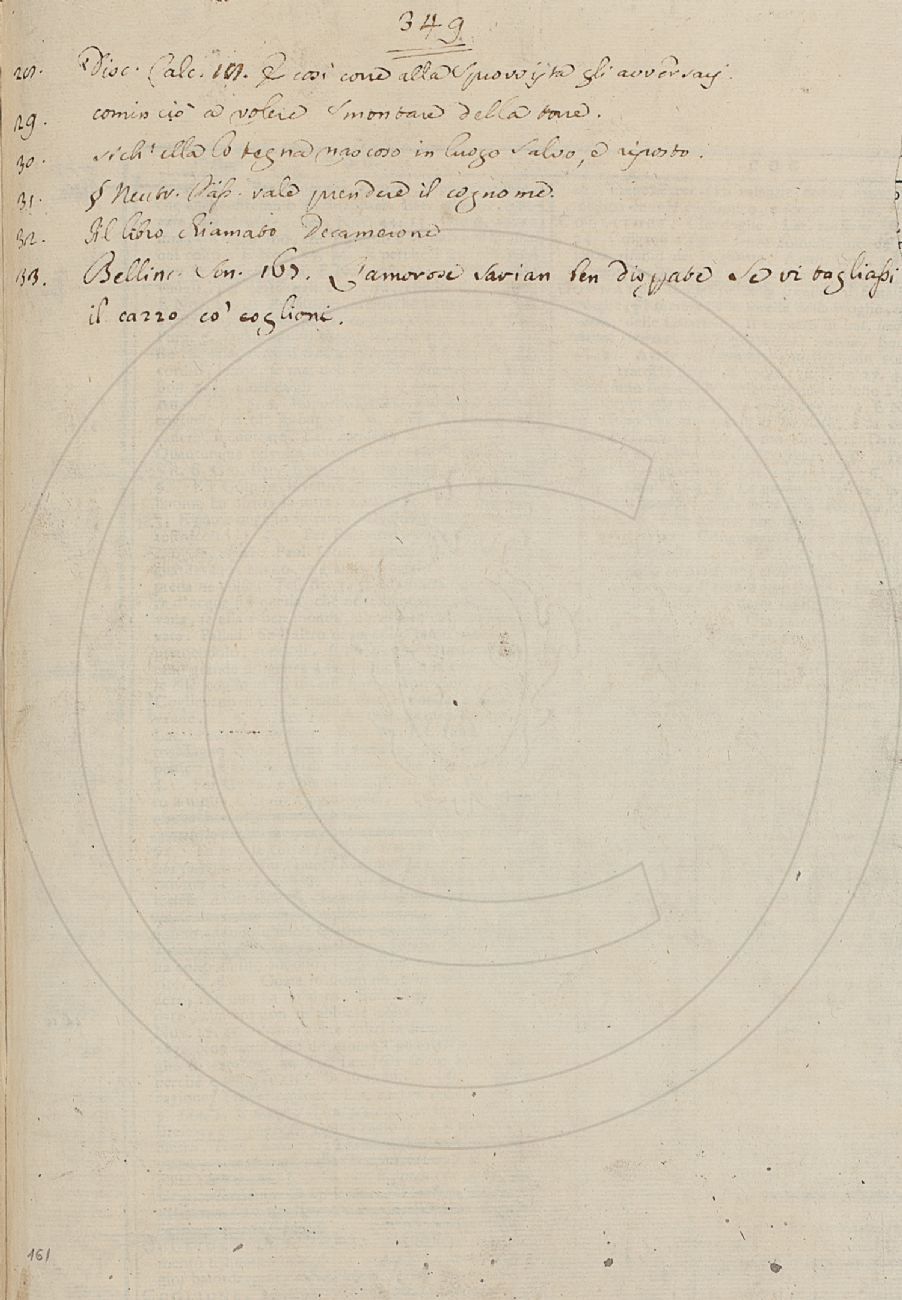 349
28. Disc. Calc. 18. E così corre alla sprovvista gli avversarj.
29. cominciò a volere smontare della torre.
30. sich' ella lo tegna nascoso in luogo salvo, e riposto.
31. § Neutr. Pass. vale prendere il cognome.
32. Il libro chiamato Decamerone
33. Bellinc. Son. 167. L'amorose sarian ben Se vi tagliassi
il cazzo co' coglioni.
161